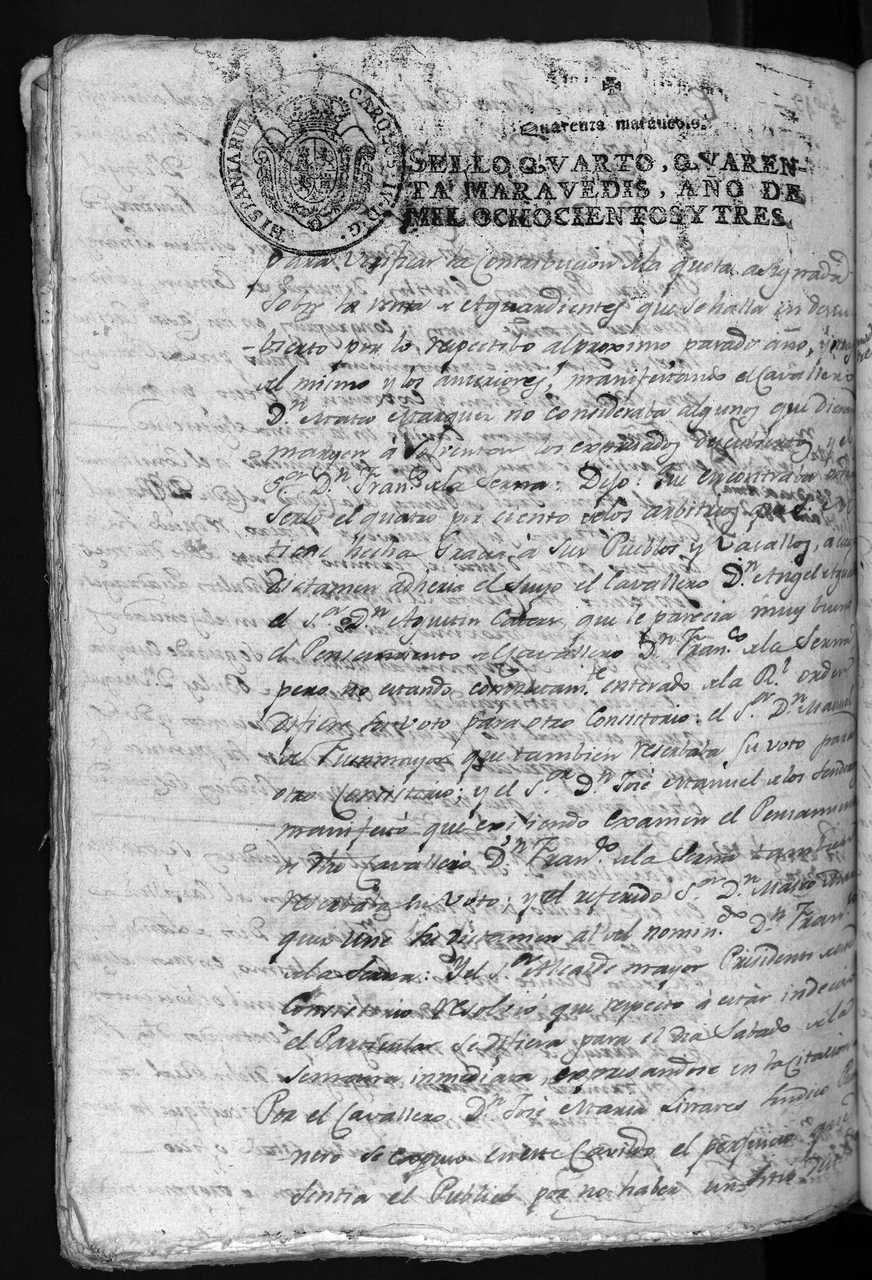 HISPANIARUM CAROLUS IV D.G.
Quarenta maravedis.
SELLO QVARTO, QVAREN-
TA MARAVEDIS, AÑO DE
MIL OCHOCIENTOS Y TRES
para verificar la Contribucion dela quota asignada
sobre la venta de Aguardientes que se halla en descu
bierto por lo respectibo al proximo pasado año,
el mismo y los anteriores; manifestando el Cavallero
Dn. Mateo Marquez no consideraba algunos que diesen
margen a sufrentar los expresados descubiertos, y el
Sor. Dn. Franco. dela Serna: Dijo: Que encontraba
serlo el quatro por ciento delos arbitrios
tiene hecha Gracia à Sus Pueblos y Vasallos, a cuyo
Dictamen adheria el Suyo el Cavallero Dn. Angel
el Sor. Dn. Agustin que le parecia muy bueno
el Pensamiento del Cavallero Dn. Franco. dela Serna
pero no estando completamte. enterado dela Rl. orden
difiere su voto para otro Consistorio: el Sor. Dn. Manuel
de Fuenmayor que tambien reserbaba su voto para
otro Consistorio; y el Sor. Dn. José Manuel delos
manifestó que exijiendo examen el Pensamiento
de dho Cavallero Dn. Franco. dela Serna tambien
reserbaba su voto; y el referido Sor. Dn. Mateo
que une su dictamen al del nomindo. Dn. Franco.
dela Serna: Y el Sor. Alcalde mayor Presidente de este
Consistorio resolvió que respecto à estar indeciso
el Particular se difiera para el dia Sabado dela
semana inmediata expresandose en la citacion
Por el Cavallero Dn. José Maria Linares Sindico
nero se expuso en este Cavildo el perjuicio que
sentia el Publico por no haber un sitio